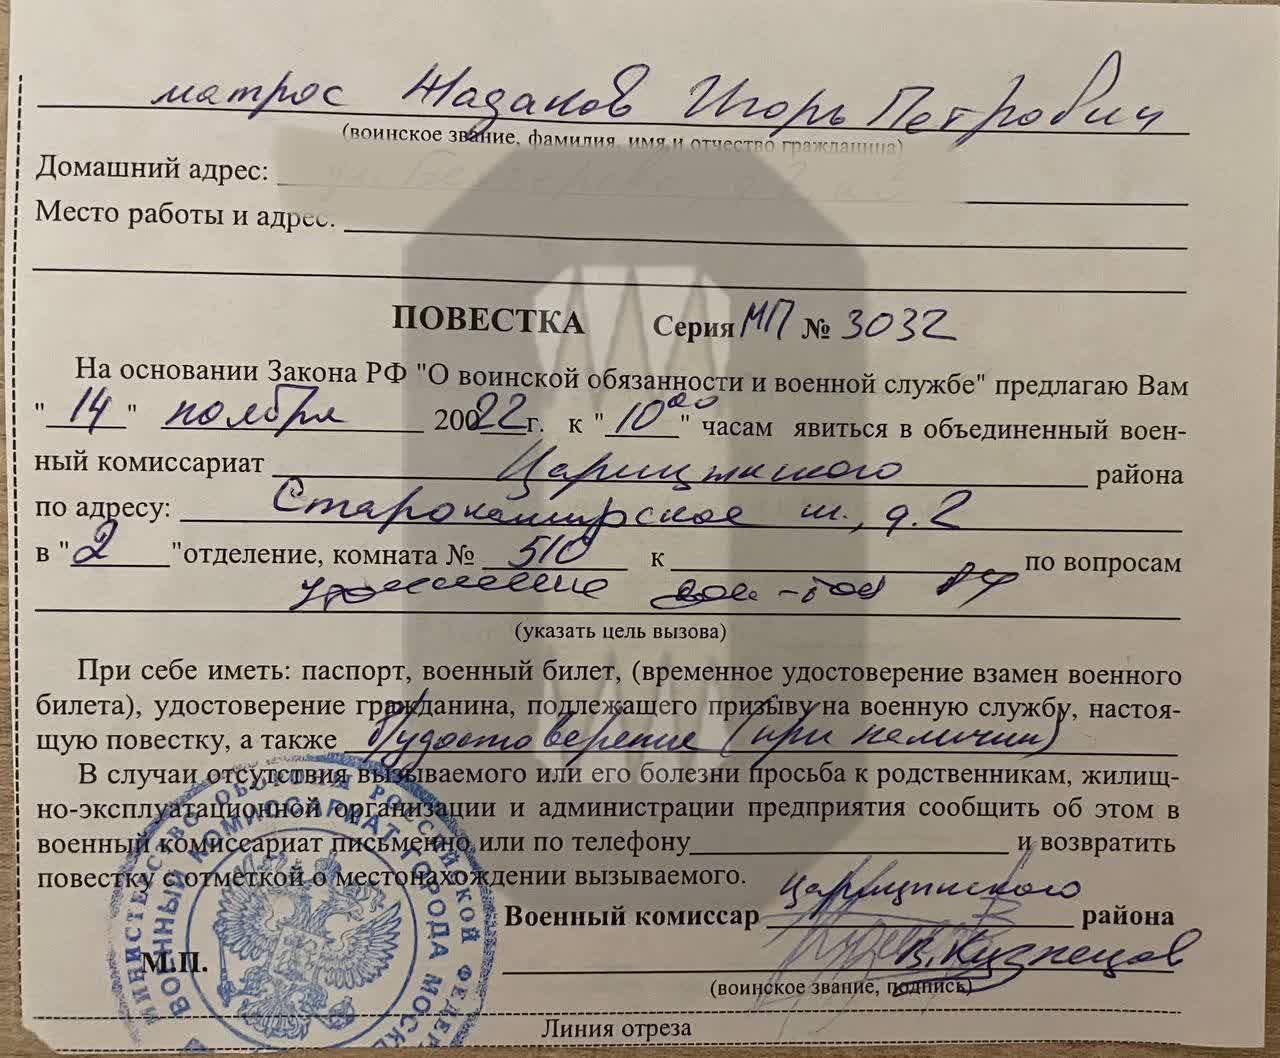 матрос Жаданов Игорь Петрович
(воинское звание, фамилия, имя и отчество гражданина)
Домашний адрес:
Место работы и адрес:
ПОВЕСТКА Серия МП № 3032
На основании Закона РФ "О воинской обязанности и военной службе" предлагаю Вам
"14" ноября 20022г. к "10 00" часам явиться в объединенный воен-
ный комиссариат Царицынского района
по адресу: Старокаширское ш., д.2
в "2" отделение, комната № 510 к по вопросам
уточнение РФ
(указать цель вызова)
При себе иметь: паспорт, военный билет, (временное удостоверение взамен военного
билета), удостоверение гражданина, подлежащего призыву на военную службу, настоя-
щую повестку, а также удостоверение (при наличии)
В случаи отсутствия вызываемого или его болезни просьба к родственникам, жилищ-
но-эксплуатационной организации и администрации предприятия сообщить об этом в
военный комиссариат письменно или по телефону и возвратить
повестку с отметкой о местонахождении вызываемого.
Военный комиссар Царицынского района
М.П. В. Кузнецов
(воинское звание, подпись)
Линия отреза
МИНИСТЕРСТВО ОБОРОНЫ РОССИЙСКОЙ ФЕДЕР
ВОЕННЫЙ КОМИССАРИАТ ГОРОДА МОСК